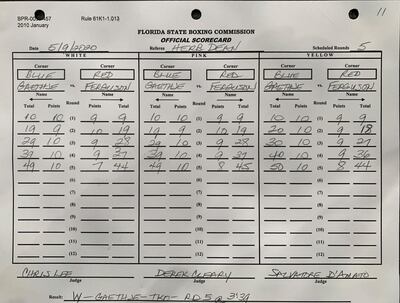 Rule 61K1-1.013
2010 January
11
FLORIDA STATE BOXING COMMISSION
OFFICIAL SCORECARD
Date 5/9/2020 Referee HERB DEAN Scheduled Rounds 5
WHITE PINK YELLOW
Corner Corner Corner Corner Corner Corner
BLUE RED BLUE RED BLUE RED
GAETHJE vs. FERGUSON GAETHJE vs. FERGUSON GAETHJE vs. FERGUSON
Name Name Name Name Name Name
Total Points Round Points Total Total Points Round Points Total Total Points Round Points Total
10 10 (1) 9 9 10 10 (1) 9 9 10 10 (1) 9 9
19 9 (2) 10 19 19 9 (2) 10 19 20 10 (2) 9 18
29 10 (3) 9 28 29 10 (3) 9 28 30 10 (3) 9 27
39 10 (4) 9 37 39 10 (4) 9 37 40 10 (4) 9 36
49 10 (5) 7 44 49 10 (5) 8 45 50 10 (5) 8 44
(6) (6) (6)
(7) (7) (7)
(8) (8) (8)
(9) (9) (9)
(10) (10) (10)
(11) (11) (11)
(12) (12) (12)
CHRIS LEE DEREK CLEARY SALVATORE D'AMATO
Judge Judge Judge
Result: W - GAETHJE - TKO - RD 5 @ 3:39